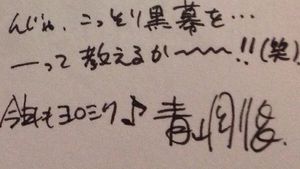 んじゃ、こっそり黒幕を…
―って教えるか〜〜〜!!(笑)
今年もヨロシク♪ 青山剛昌